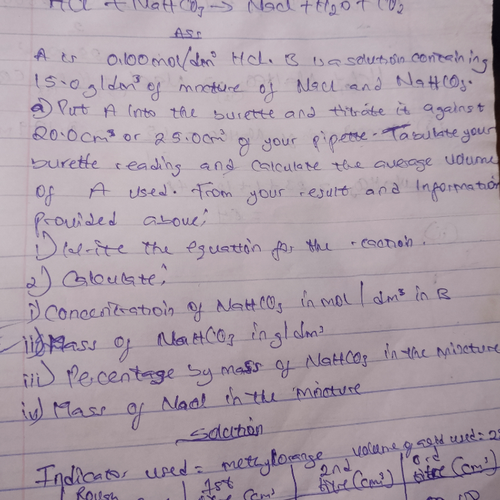 HCl + NaHCO₃ → NaCl + H₂O + CO₂
Ass
A is 0.100mol/dm³ HCl. B is a solution containing
15.0g/dm³ of mixture of NaCl and NaHCO₃.
a) Put A into the burette and titrate it against
20.0cm³ or 25.0cm³ of your pipette. Tabulate your
burette reading and calculate the average volume
of A used. From your result and information
provided above;
1) Write the equation for the reaction.
2) Calculate;
i) Concentration of NaHCO₃ in mol/dm³ in B
ii) Mass of NaHCO₃ in g/dm³
iii) Percentage by mass of NaHCO₃ in the mixture
iv) Mass of NaCl in the mixture
Solution
Indicator used = methyl orange volume of acid used = 2
Rough 1st (cm³) 2nd (cm³) 3rd (cm³)